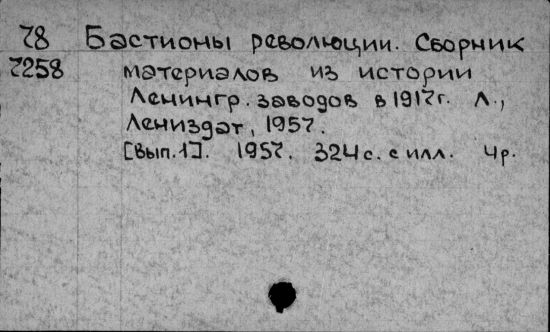 78 Бастионы революции. Сборник
7258 материалов из истории
Ленингр. заводов в 1917г. Л.,
Лениздат, 1957.
[Вып.1]. 1957. 324с. с илл. 4р.